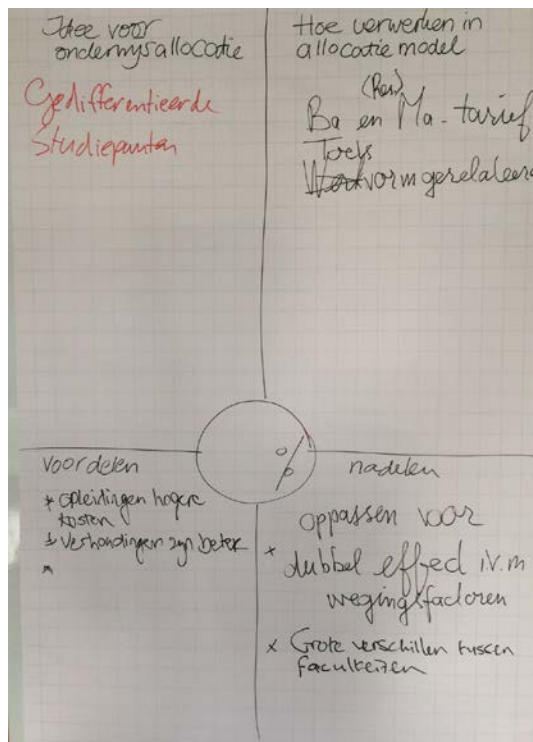 Idee voor
onderwijsallocatie
Gedifferentieerde
Studiepunten
Hoe verwerken in
allocatie model
(Res)
Ba en Ma-tarief
Toets
vorm gerelateer
%
voordelen
* opleidingen hogere
kosten
* verhoudingen zijn beter
*
nadelen
oppassen voor
* dubbel effect i.v.m
wegingsfactoren
x Grote verschillen tussen
faculteiten